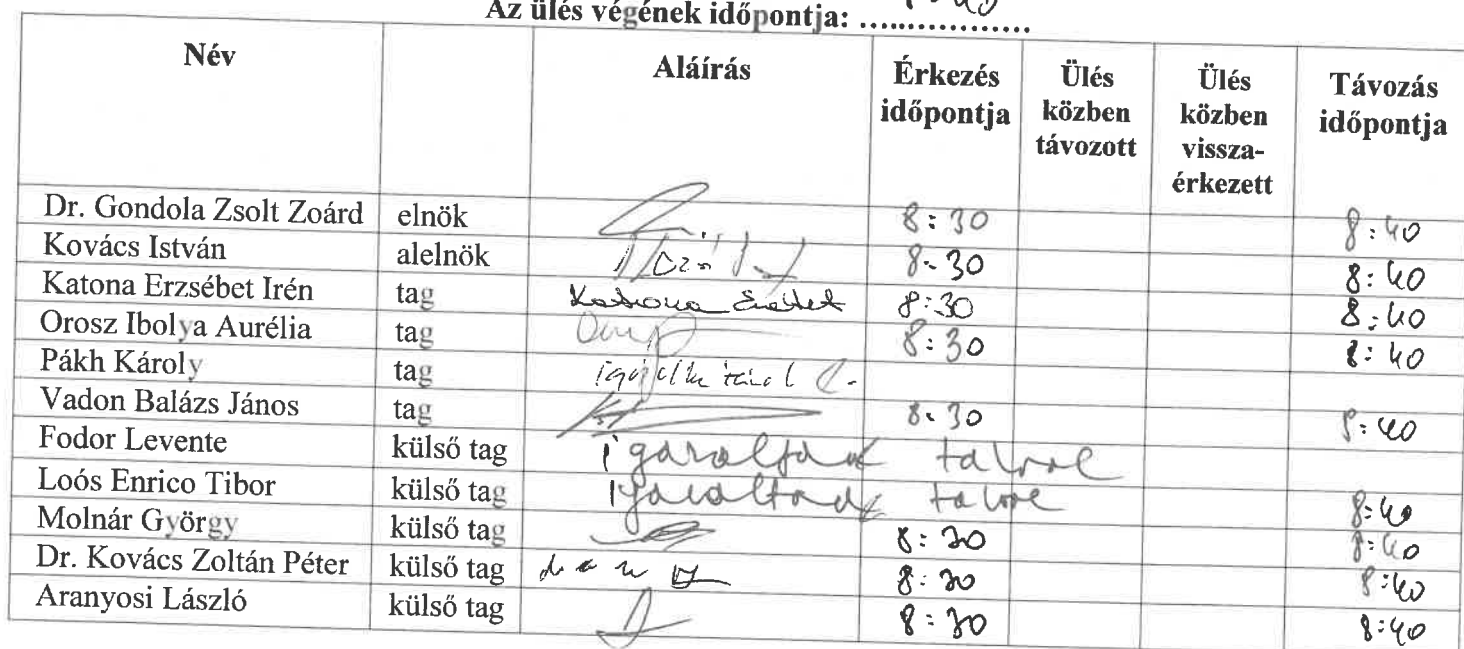 Az ülés végének időpontja: ..................
Név Aláírás Érkezés időpontja Ülés közben távozott Ülés közben vissza-érkezett Távozás időpontja
Dr. Gondola Zsolt Zoárd elnök 8:30 8:40
Kovács István alelnök 8:30 8:40
Katona Erzsébet Irén tag Katona Erzsébet 8:30 8:40
Orosz Ibolya Aurélia tag 8:30 8:40
Pákh Károly tag
Vadon Balázs János tag 8:30 8:40
Fodor Levente külső tag igazoltan távol
Loós Enrico Tibor külső tag igazoltan távol 8:40
Molnár György külső tag 8:30 8:40
Dr. Kovács Zoltán Péter külső tag 8:30 8:40
Aranyosi László külső tag 8:30 8:40